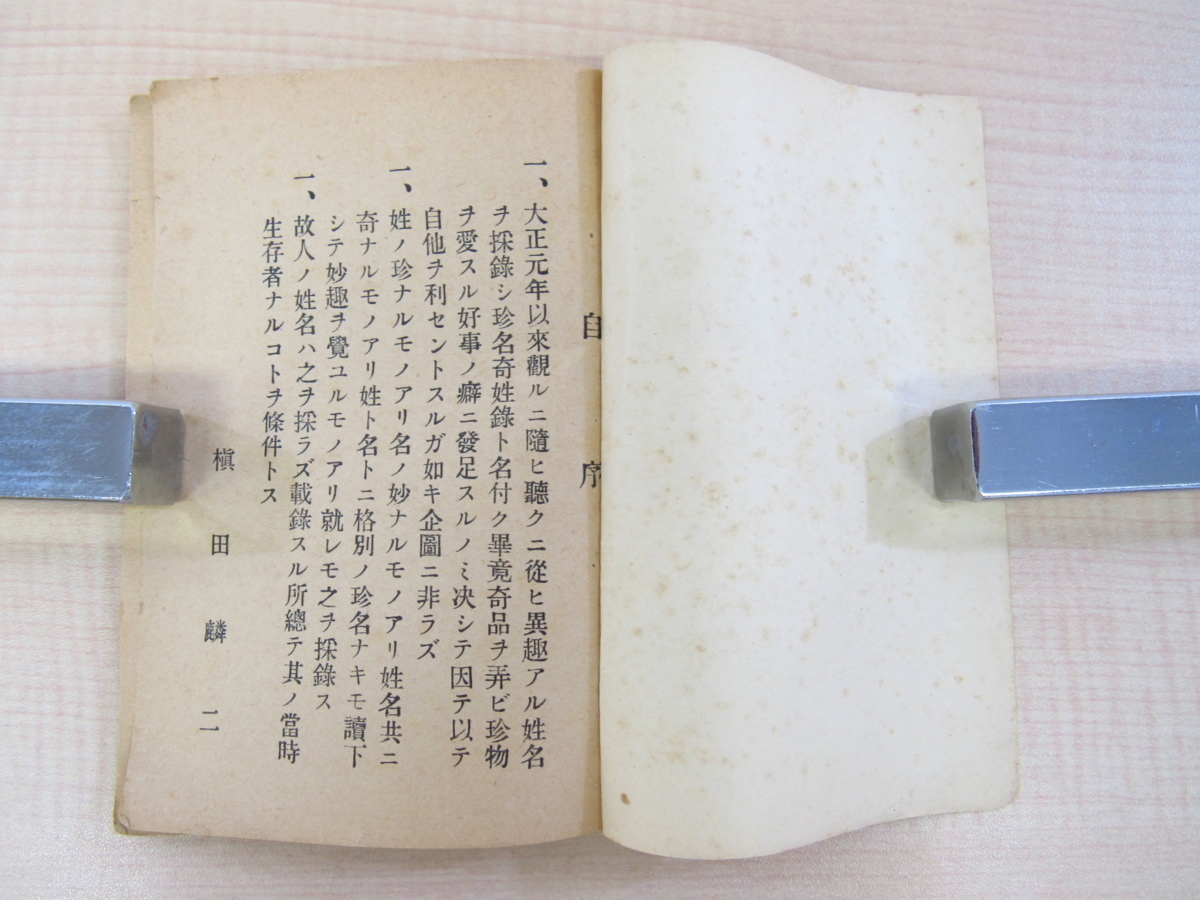 自序
一、大正元年以來觀ルニ隨ヒ聽クニ從ヒ異趣アル姓名
ヲ採錄シ珍名奇姓錄ト名付ク畢竟奇品ヲ弄ビ珍物
ヲ愛スル好事ノ癖ニ發足スルノミ決シテ因テ以テ
自他ヲ利セントスルガ如キ企圖ニ非ラズ
一、姓ノ珍ナルモノアリ名ノ妙ナルモノアリ姓名共ニ
奇ナルモノアリ姓ト名トニ格別ノ珍名ナキモ讀下
シテ妙趣ヲ覺ユルモノアリ就レモ之ヲ採錄ス
一、故人ノ姓名ハ之ヲ採ラズ載錄スル所總テ其ノ當時
生存者ナルコトヲ條件トス
槇田麟二